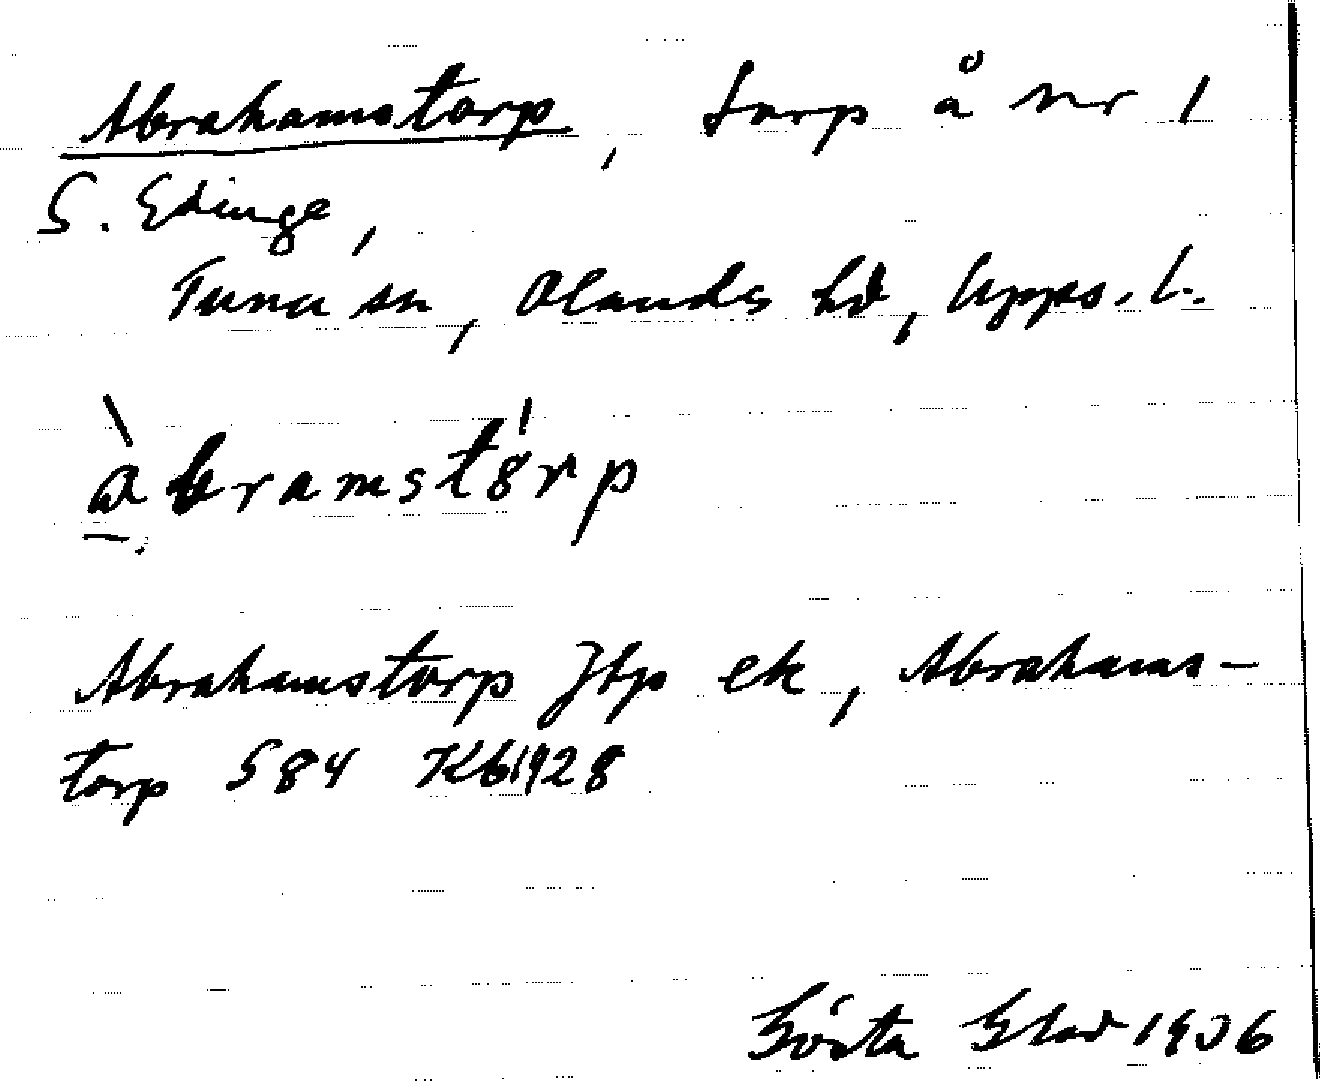 Abrahamstorp, torp å nr 1
S. Edinge,
Tuna sn, Olands hd, Upps. l.
àbramstórp
Abrahamstorp Jbp ek, Abrahams-
torp 584 Kb1928
Gösta 1936